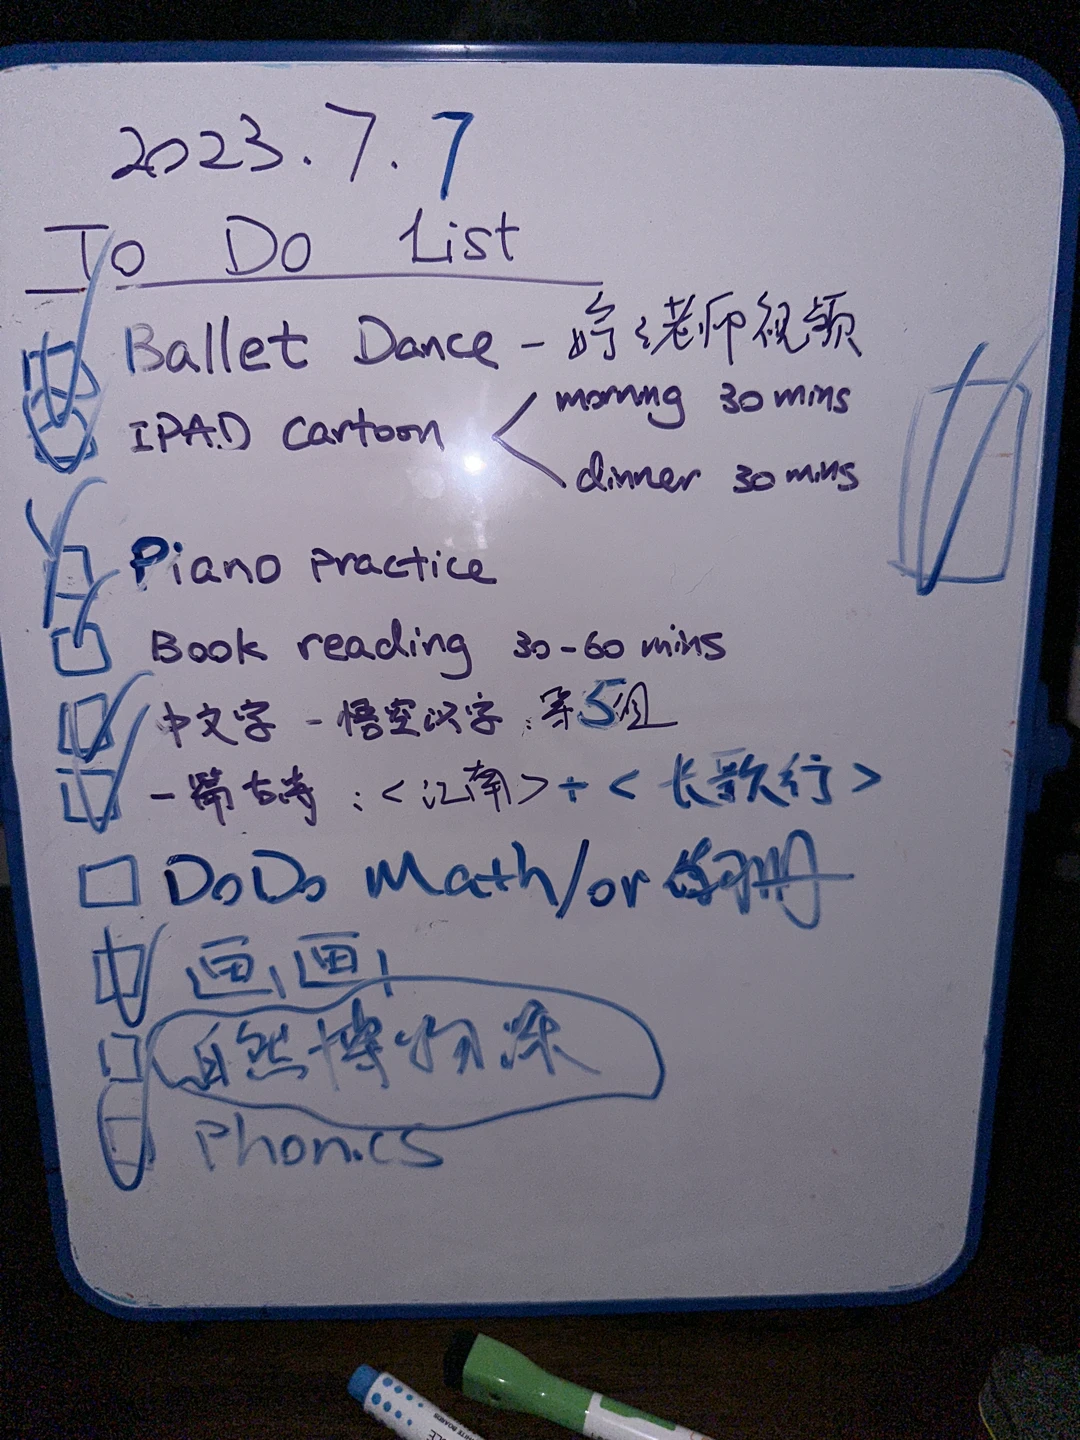 2023.7.7
To Do List
Ballet Dance - 婷婷老师视频
IPAD Cartoon < morning 30 mins
dinner 30 mins
Piano practice
Book reading 30-60 mins
中文字 - 悟空识字：第5组
一篇古诗：<江南> + <长歌行>
DoDo Math/or 练习册
画画
自然博物课
Phonics